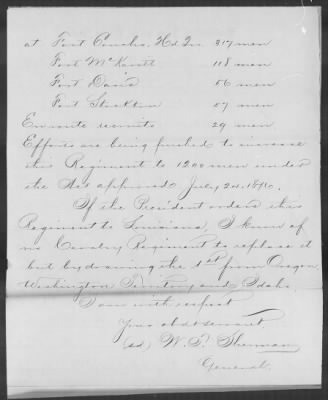 at Fort Concho, Hd Qrs 317 men
Fort McKavett 118 men
Fort Davis 56 men
Fort Stockton 57 men
En route recruits 29 men
Efforts are being pushed to increase
this Regiment to 1200 men under
the Act approved July 24. 1876.
If the President orders this
Regiment to Louisiana, I know of
no Cavalry Regiment to replace it
but by drawing the 1st from Oregon,
Washington Territory and Idaho.
I am with respect
Your obdt servant,
W. T. Sherman
General.